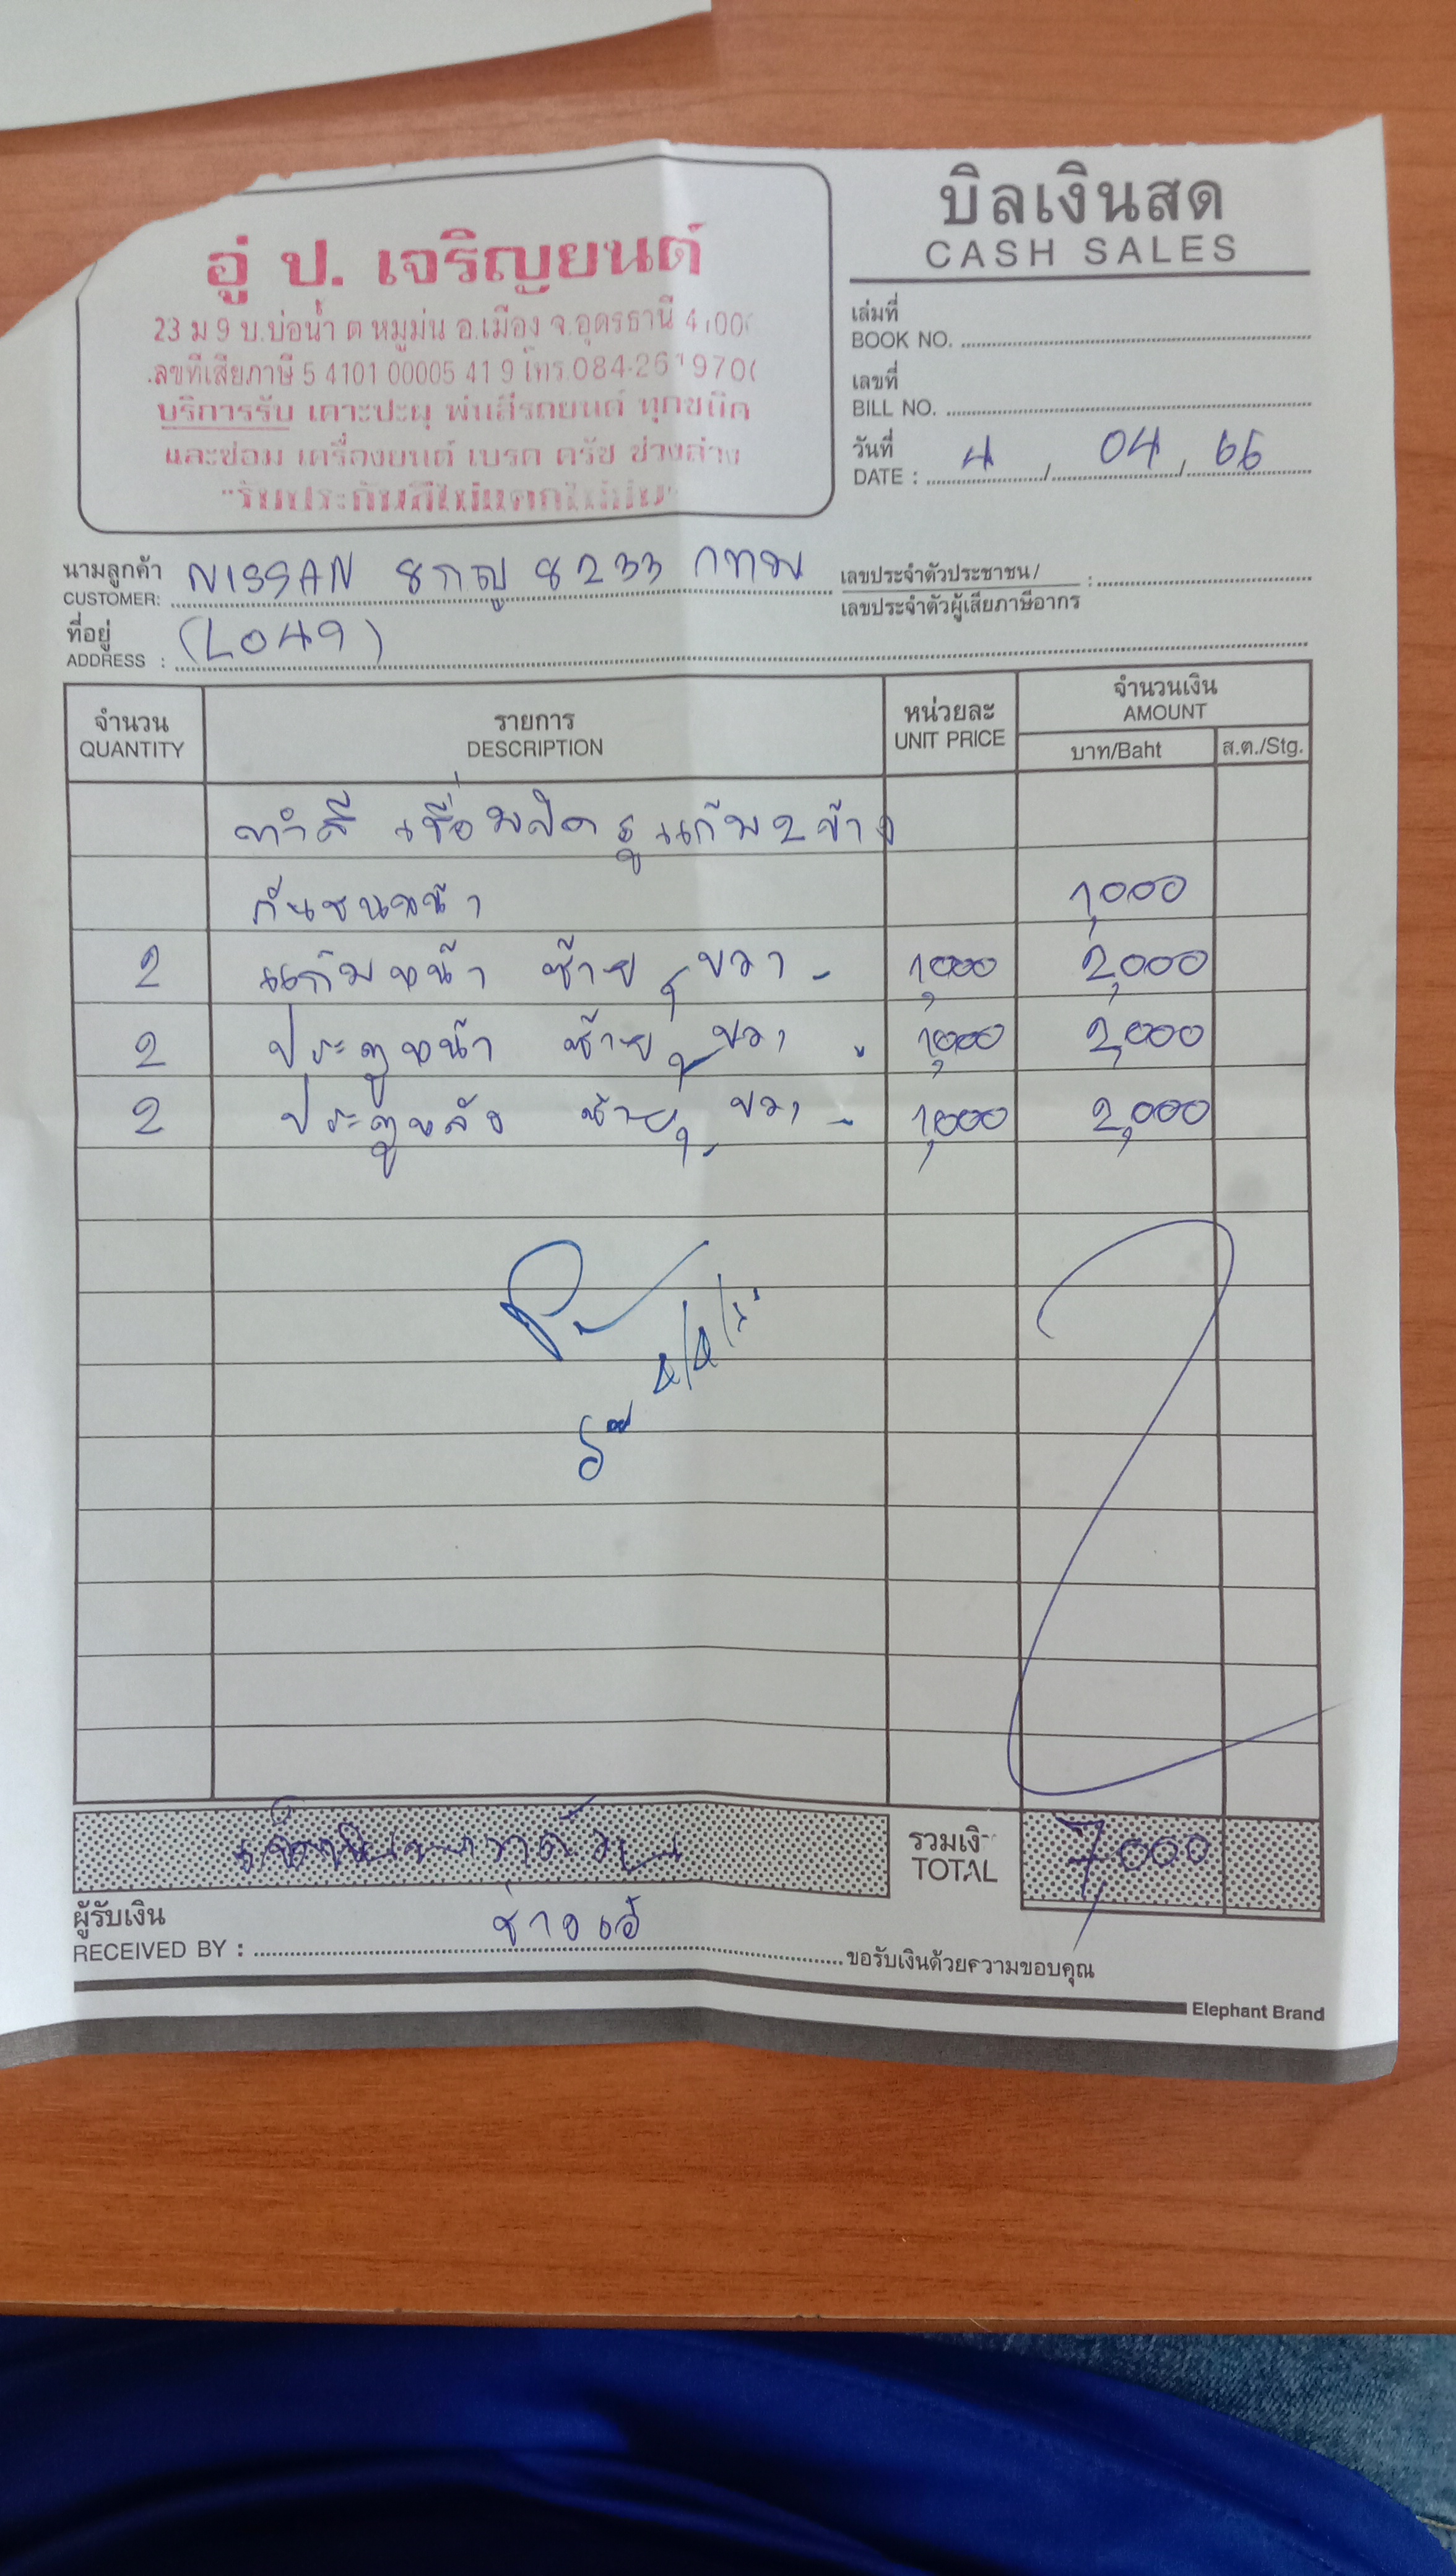 บิลเงินสด
CASH SALES
อู่ ป. เจริญยนต์
23 ม 9 บ.บ่อน้ำ ต หมูม่น อ.เมือง จ.อุดรธานี 41000
ลขที่เสียภาษี 5 4101 00005 41 9 โทร.084-2619700
บริการรับ เคาะปะผุ พ่นสีรถยนต์ ทุกชนิด
และซ่อม เครื่องยนต์ เบรค ครัช ช่วงล่าง
เล่มที่
BOOK NO.
เลขที่
BILL NO.
วันที่
DATE : 4 / 04 / 66
นามลูกค้า
CUSTOMER: NISSAN 8กญ 8233 กทม
เลขประจำตัวประชาชน/
เลขประจำตัวผู้เสียภาษีอากร :
ที่อยู่
ADDRESS : (L049)
จำนวน
QUANTITY
รายการ
DESCRIPTION
หน่วยละ
UNIT PRICE
จำนวนเงิน
AMOUNT
บาท/Baht
ส.ต./Stg.
ทำสี เชื่อมปิดรูแก้ม2ข้าง
กันชนหน้า 1,000
2 แก้มหน้า ซ้าย, ขวา - 1,000 2,000
2 ประตูหน้า ซ้าย, ขวา - 1,000 2,000
2 ประตูหลัง ซ้าย, ขวา - 1,000 2,000
เจ็ดพันบาทถ้วน
รวมเงิ
TOTAL
7,000
ผู้รับเงิน
RECEIVED BY :
ขอรับเงินด้วยความขอบคุณ
Elephant Brand